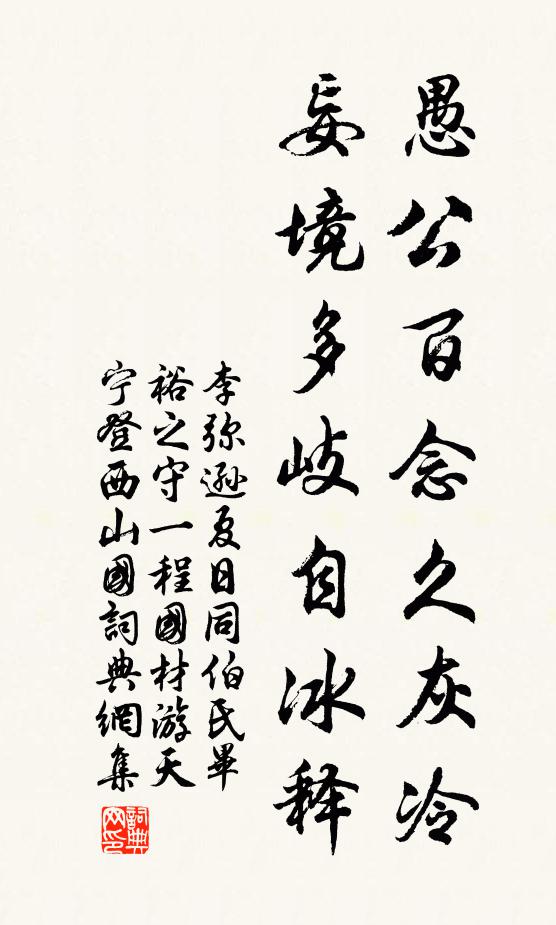 愚公百念久灰冷
妄境多歧自冰释
李弥遜夏日同伯氏畢
裕之守一程國材游天
宁登西山國詞典網集
詞典网印